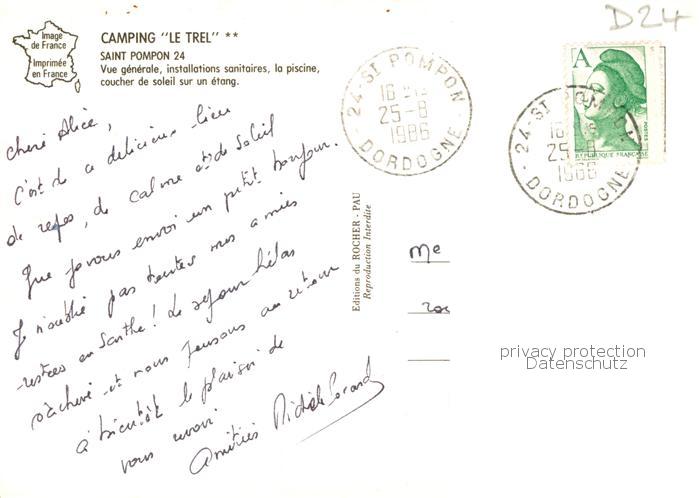 Image
de France
Imprimée
en France
CAMPING "LE TREL" **
SAINT POMPON 24
Vue générale, installations sanitaires, la piscine,
coucher de soleil sur un étang.
D24
24-ST POMPON
16
25-8
1986
DORDOGNE
A
POSTES
REPUBLIQUE FRANÇAISE
24-ST POMPON
16
25-8
1986
DORDOGNE
Chère Alice,
C'est de ce délicieux lieu
de repos, de calme et de Soleil
que je vous envoi un petit bonjour.
Je n'oublie pas toutes mes amies
restées en Sarthe ! Le séjour hélas
s'achève et nous pensons au retour
à bientôt le plaisir de
vous revoir.
Amitiés Michèle
Editions du ROCHER - PAU
Reproduction Interdite
Me
privacy protection
Datenschutz